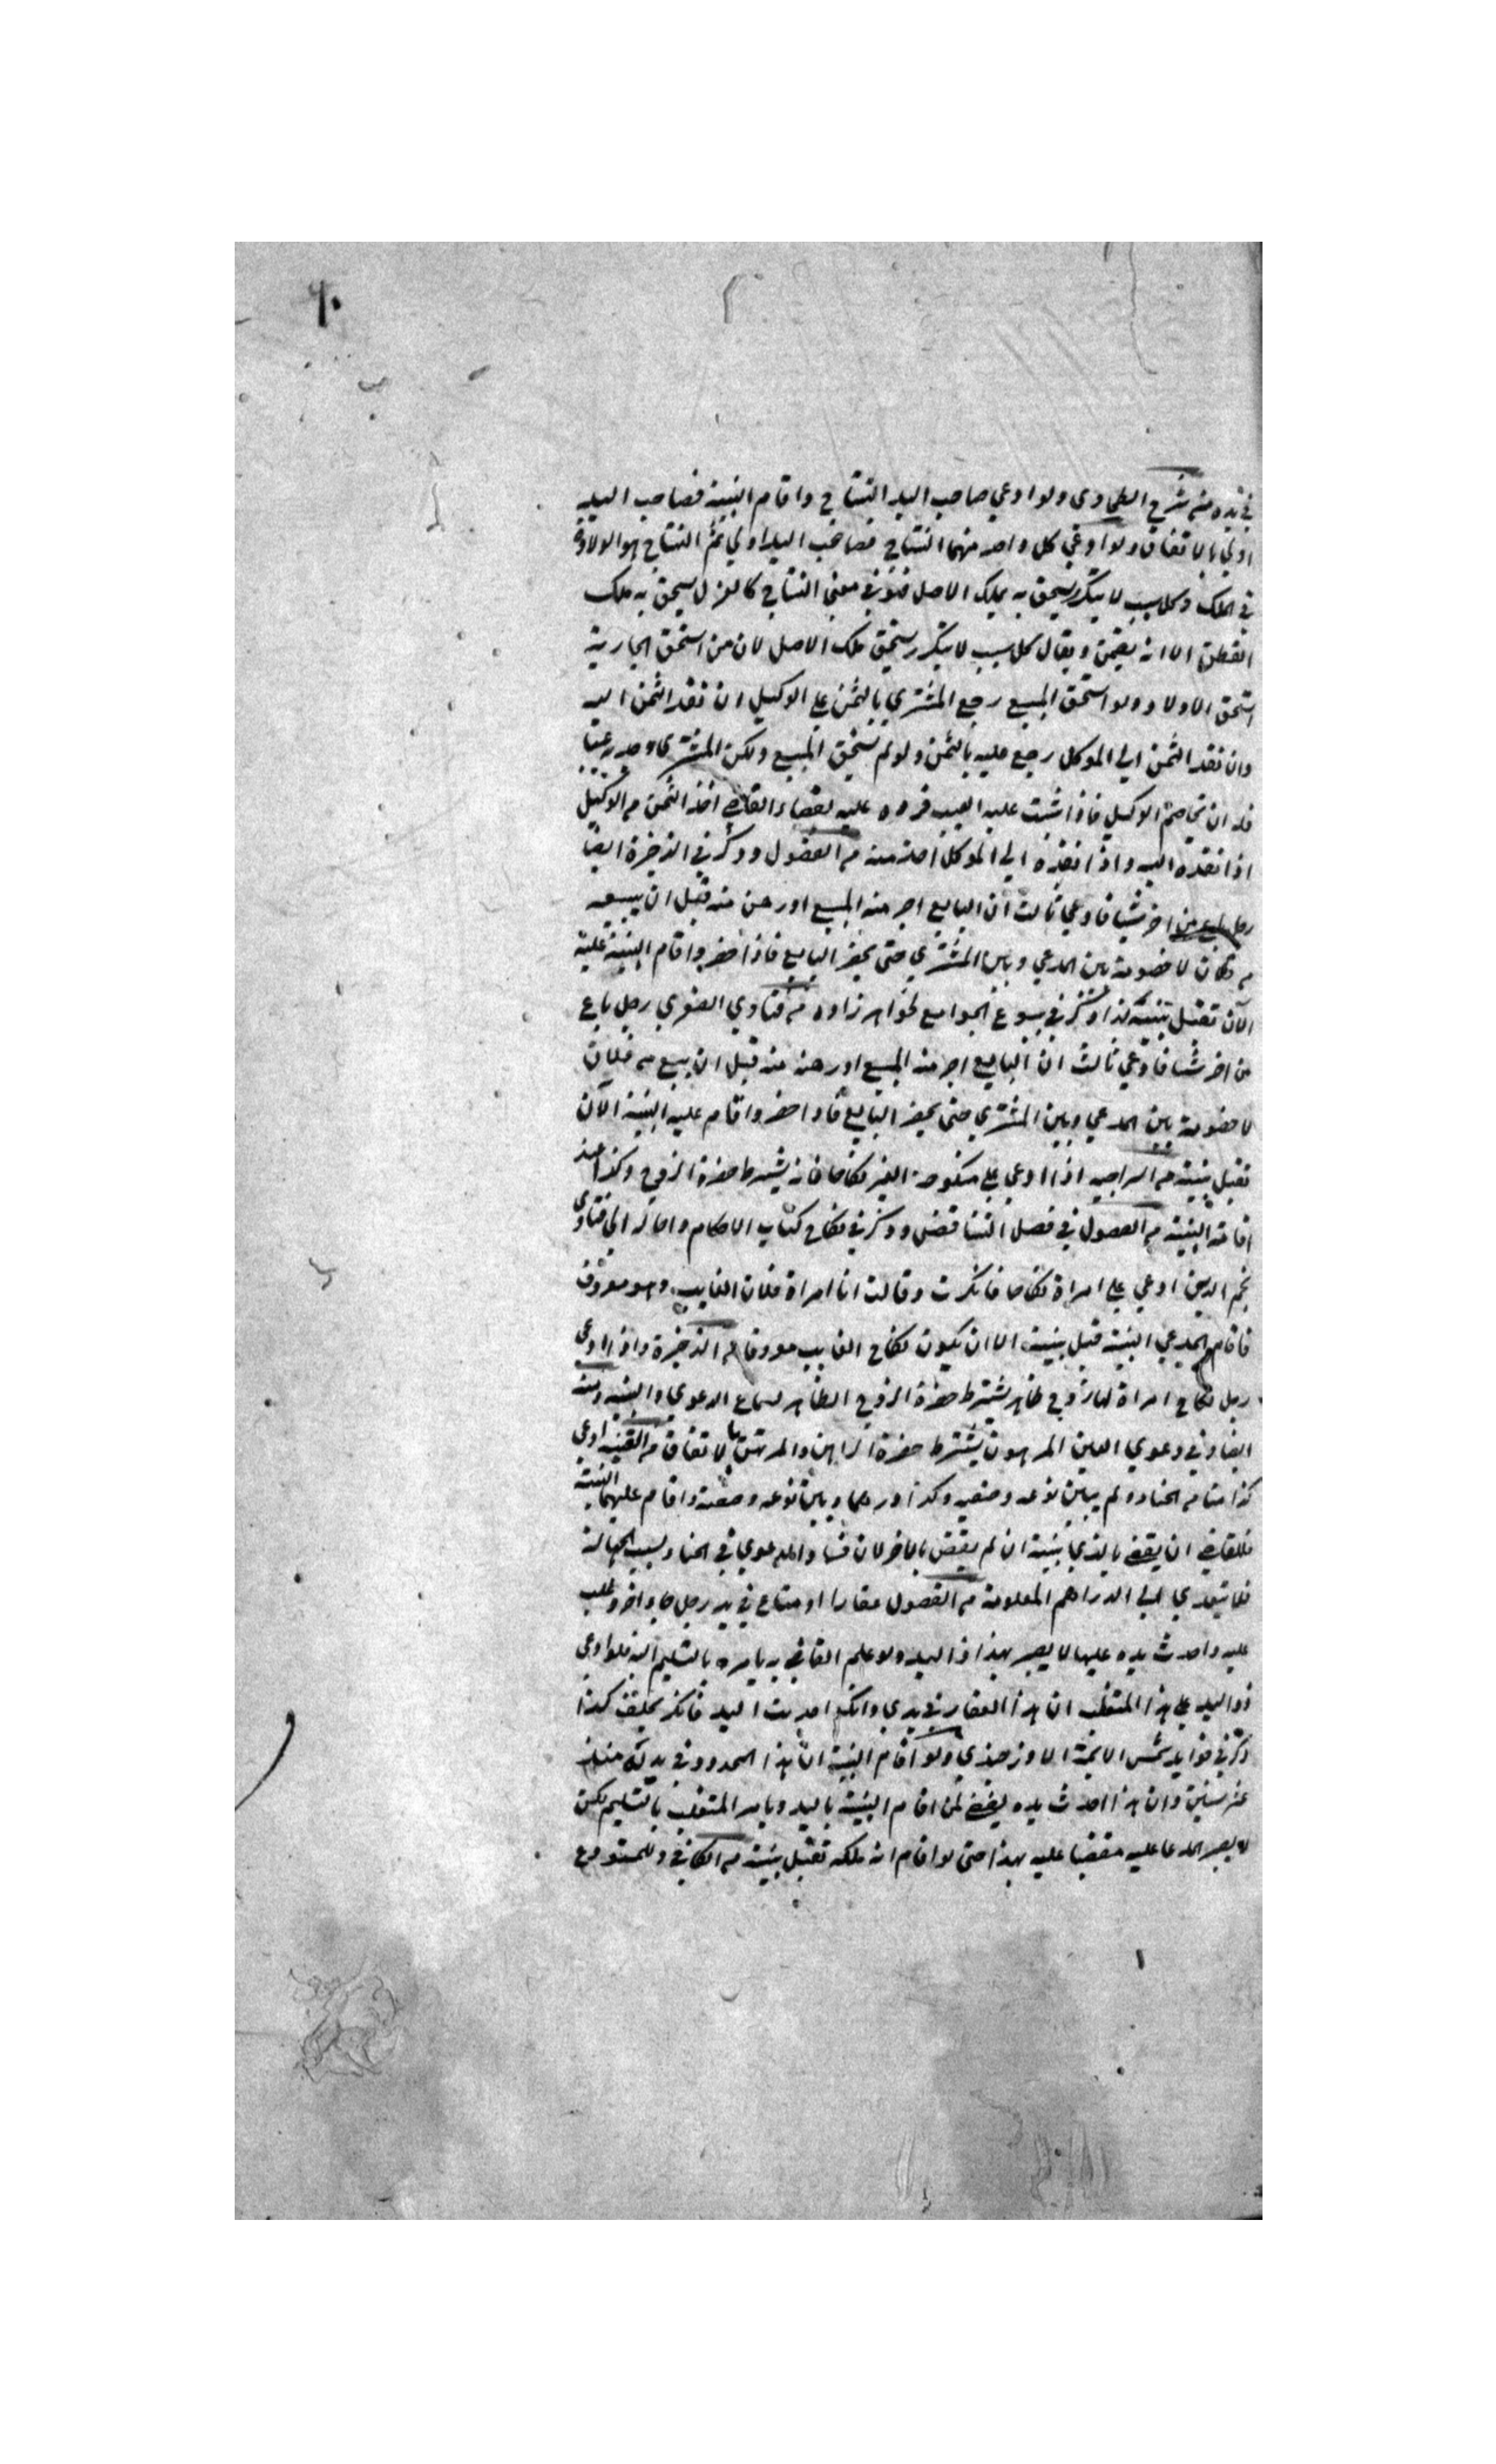 ٦٠
في يده من شرح الطحاوي ولو ادعي صاحب اليد النتاج واقام البينة فصاحب اليد
اولي بالاتفاق ولو ادعي كل واحد منهما النتاج فصاحب اليد اولي ثم النتاج هو الولادة
في الملك وكل سبب لا يتكرر يستحق به ملك الاصل فهو في معني النتاج كالغزل يستحق به ملك
القطن الا انه يضمن ويقال كل سبب لا يتكرر يستحق ملك الاصل لان من استحق الجارية
استحق الاولاد ولو استحق المبيع رجع المشتري بالثمن علي الوكيل ان نقد الثمن اليه
وان نقد الثمن الي الموكل رجع عليه بالثمن ولو لم يستحق المبيع ولكن المشتري وجد به عيبا
فله ان يخاصم الوكيل فاذا اثبت عليه العيب فرده عليه بقضاء القاضي اخذ الثمن من الوكيل
اذا نقده اليه واذا نقده الي الموكل اخذ منه من الفصول وذكر في الذخيرة ايضا
رجل باع من اخر شيا فادعي ثالث ان البايع اجر منه المبيع او رهن منه قبل ان يبيعه
من فلان لا خصومة بين المدعي وبين المشتري حتي يحضر البايع فاذا حضر واقام البينة عليه
الآن تقبل بينته كذا ذكر في بيوع الجوامع لخواهر زاده من فتاوي الصغري رجل باع
من اخر شيا فادعي ثالث ان البايع اجر منه المبيع او رهنه منه قبل ان يبيع من فلان
لا خصومة بين المدعي وبين المشتري حتي يحضر البايع فاذا حضر واقام عليه البينة الآن
تقبل بينته من السراجيه اذا ادعي علي منكوحة الغير نكاحا فانه يشترط حضرة الزوج وكذا عند
اقامة البينة من الفصول في فصل التناقض وذكر في نكاح كتاب الاحكام واحاله الي فتاوي
نجم الدين ادعي علي امراة نكاحا فانكرت وقالت انا امراة فلان الغايب وهو معروف
فاقام المدعي البينة قبل بينته الا ان يكون نكاح الغايب معروفا من الذخيرة واذا ادعي
رجل نكاح امراة لها زوج ظاهر يشترط حضرة الزوج الظاهر لسماع الدعوي والبينة ومنه
ايضا وفي دعوي العين المرهون يشترط حضرة الراهن والمرتهن بالاتفاق من القنيه ادعي
كذا منا من الحنا ولم يبين نوعه وصفته وكذا درهما وبين نوعه وصفته واقام عليهما البينة
فللقاضي ان يقضي بالذي بينته ان لم يقض بالاخر لان فساد الدعوي في الحنا بسبب الجهالة
فلا يتعدي الي الدراهم المعلومة من الفصول عقارا او متاع في يد رجل جاء اخر وغلب
عليه واحدث يده عليها لا يصير بهذا ذا اليد ولو علم القاضي به يامره بالتسليم اليه فلو ادعي
ذو اليد علي هذا المتغلب ان هذا العقار في يدي وانك احدثت اليد فانكر يحلف كذا
ذكر في فوايد شمس الائمة الاوزجندي ولو اقام البينة ان هذا المحدود في يده منذ
عشر سنين وان هذا احدث يده يقضي لمن اقام البينة باليد ويامر المتغلب بالتسليم لكن
لا يصير المدعا عليه مقضيا عليه بهذا حتي لو اقام انه ملكه تقبل بينته من الكافي وللمستودع